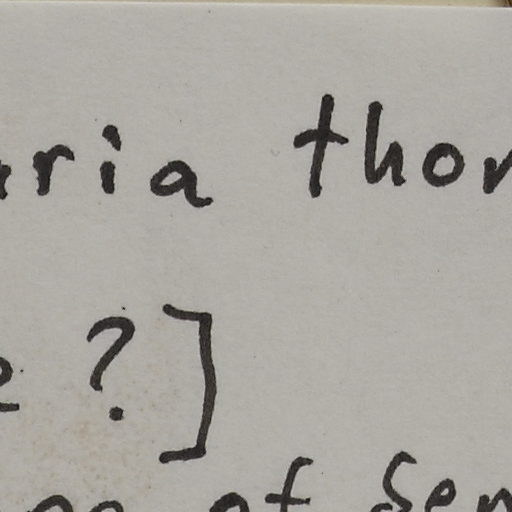 aria thor
e ?]
of Sen